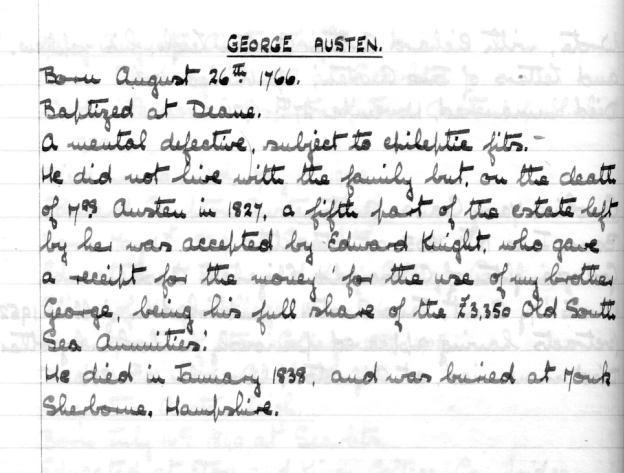 GEORGE AUSTEN.
Born August 26TH 1766.
Baptized at Deane.
A mental defective, subject to epileptic fits.-
He did not live with the family but, on the death
of Mrs Austen in 1827, a fifth part of the estate left
by her was accepted by Edward Knight, who gave
a receipt for the money 'for the use of my brother
George, being his full share of the £3,350 Old South
Sea Annuities.'
He died in January 1838, and was buried at Monk
Sherborne, Hampshire.